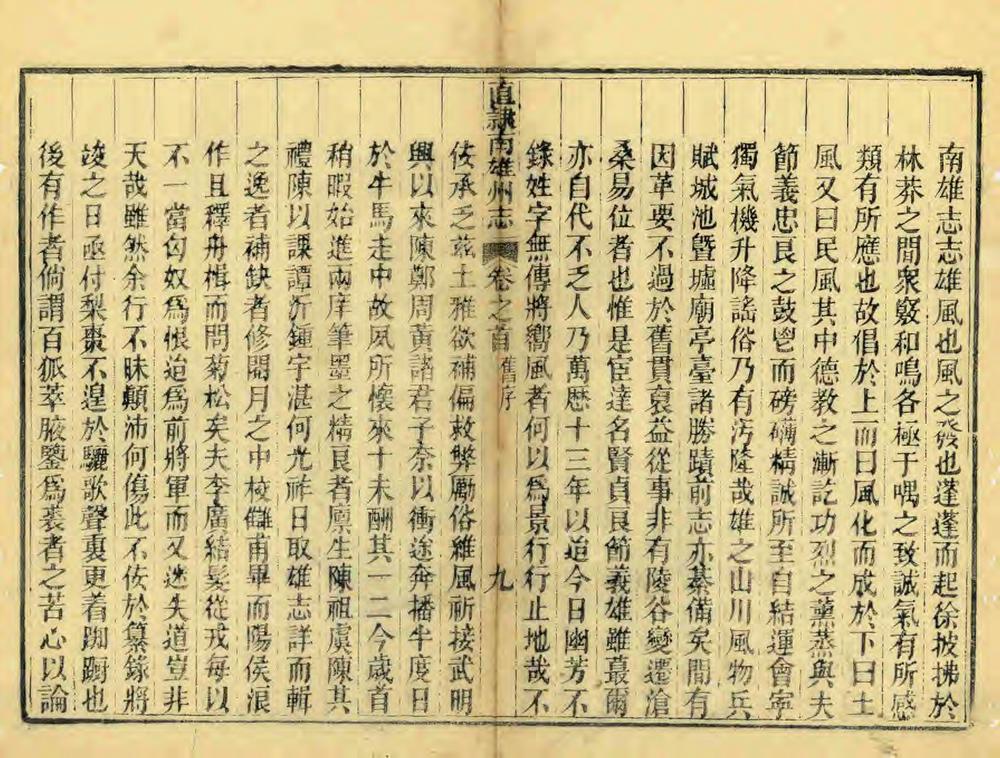 南雄志志雄風也風之發也蓬蓬而起徐披拂於
林莽之間衆竅和鳴各極于喁之致誠氣有所感
類有所應也故倡於上而曰風化而成於下曰土
風又曰民風其中德教之漸訖功烈之薰蒸與夫
節義忠良之鼓鬯而磅礴精誠所至自結運會寧
獨氣機升降謠俗乃有汚隆哉雄之山川風物兵
賦城池曁墟廟亭臺諸勝蹟前志亦綦備矣間有
因革要不過於舊貫裒益從事非有陵谷變遷滄
桑易位者也惟是宦達名賢貞良節義雄雖蕞爾
亦自代不乏人乃萬厯十三年以迨今日幽芳不
錄姓字無傳將嚮風者何以爲景行行止地哉不
直隸南雄州志 卷之首 舊序 九
佞承乏茲土雅欲補偏救弊勵俗維風祈接武明
興以來陳鄭周黃諸君子奈以衝途奔播半度日
於牛馬走中故夙所懷來十未酬其一二今歲首
稍暇始進兩庠筆墨之精良者廪生陳祖虞陳其
禮陳以謨譚所鍾字湛何光祚日取雄志詳而輯
之逸者補缺者修閱月之中校讎甫畢而陽侯浪
作且釋舟楫而問菊松矣夫李廣結髮從戎每以
不一當匈奴爲恨迨爲前將軍而又迷失道豈非
天哉雖然余行不昧顚沛何傷此不佞於纂錄將
竣之日亟付梨棗不遑於驪歌聲裏更着踟蹰也
後有作者倘謂百狐萃腋鑒爲裘者之苦心以論